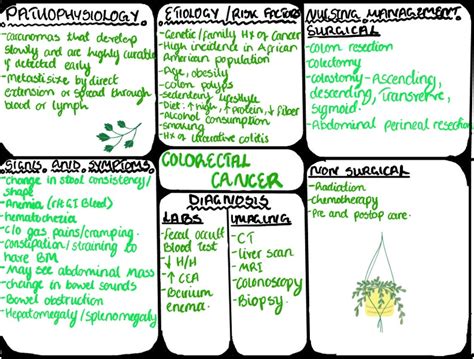 PATHOPHYSIOLOGY
-carcinomas that develop
slowly and are highly curable
if detected early
-metastasize by direct
extension or spread through
blood or lymph
ETIOLOGY / RISK FACTORS
-Genetic/family Hx of Cancer
-High incidence in African
American population
-Age, obesity
-Colon polyps
-Sedentary lifestyle
-Diet: ↑high, ↑protein, ↓fiber
-Alcohol consumption
-smoking
-Hx of ulcerative colitis
NURSING MANAGEMENT
SURGICAL
-colon resection
-colectomy
-colostomy-Ascending,
descending, Transverse,
sigmoid.
-Abdominal perineal resection
SIGNS AND SYMPTOMS
-change in stool consistency/
shape
-Anemia (r/t GI Bleed)
-hematochezia
-C/o gas pains/cramping.
-constipation/straining to
have BM
-May see abdominal mass
-change in bowel sounds
-Bowel obstruction
-Hepatomegaly/splenomegaly
COLORECTAL
CANCER
DIAGNOSIS
LABS
-Fecal occult
Blood test
-↓H/H
-↑CEA
-Barium
enema.
IMAGING
-CT
-liver scan
-MRI
-Colonoscopy
-Biopsy
NON SURGICAL
-Radiation
-chemotherapy
-Pre and postop care.